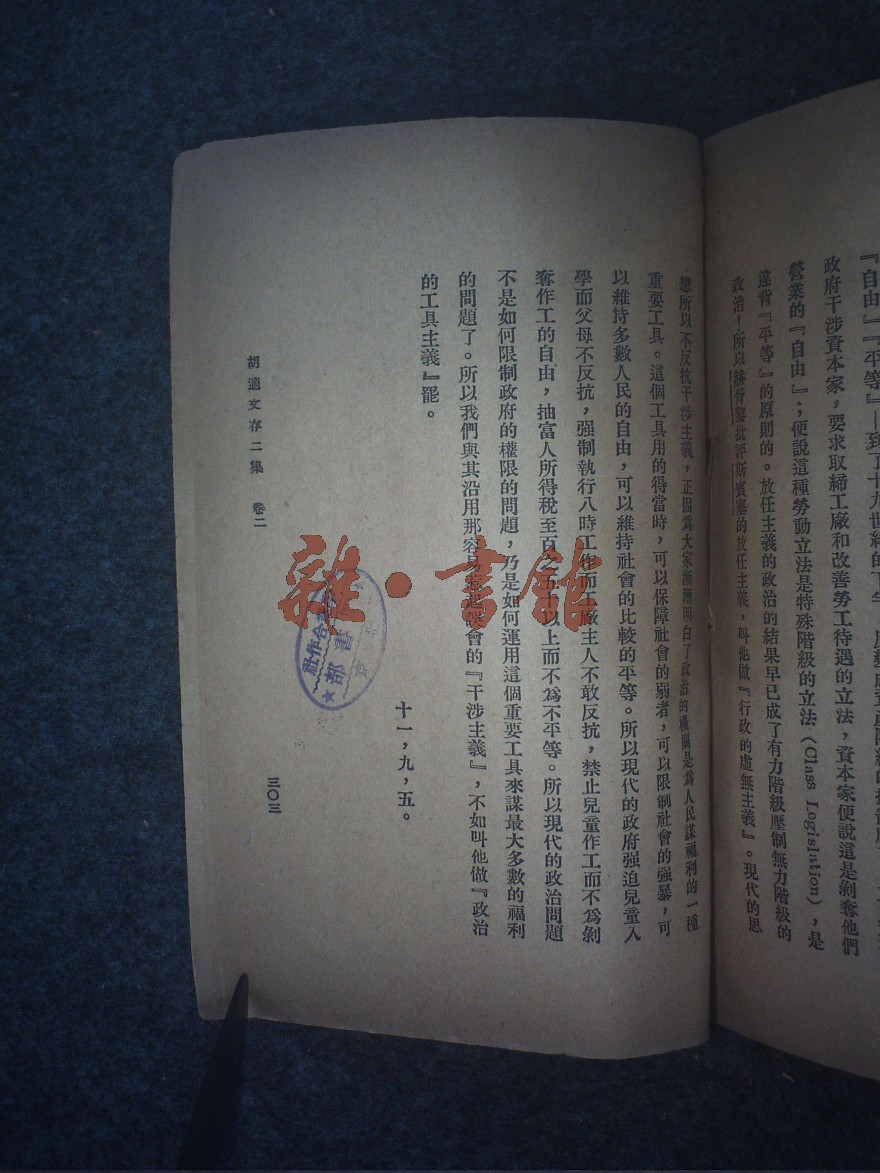 『自由』『平等』——到了十九世紀的下半
政府干涉資本家，要求取締工廠和改善勞工待遇的立法，資本家便說這是剝奪他們
營業的『自由』；便說這種勞動立法是特殊階級的立法（Class Legislation），是
違背『平等』的原則的。放任主義的政治的結果早已成了有力階級壓制無力階級的
政治！所以赫胥黎批評斯賓塞的放任主義，叫他做『行政的虛無主義』。現代的思
想所以不反抗干涉主義，正因爲大家漸漸明白了政治的機關是爲人民謀福利的一種
重要工具。這個工具用的得當時，可以保障社會的弱者，可以限制社會的強暴，可
以維持多數人民的自由，可以維持社會的比較的平等。所以現代的政府强迫兒童入
學而父母不反抗，强制執行八時工作而工廠主人不敢反抗，禁止兒童作工而不爲剝
奪作工的自由，抽富人所得稅至百之五十以上而不爲不平等。所以現代的政治問題
不是如何限制政府的權限的問題，乃是如何運用這個重要工具來謀最大多數的福利
的問題了。所以我們與其沿用那容易惹起誤會的『干涉主義』，不如叫他做『政治
的工具主義』罷。
十一，九，五。
胡適文存二集 卷二
三〇三
雜·書館
合作社
書部